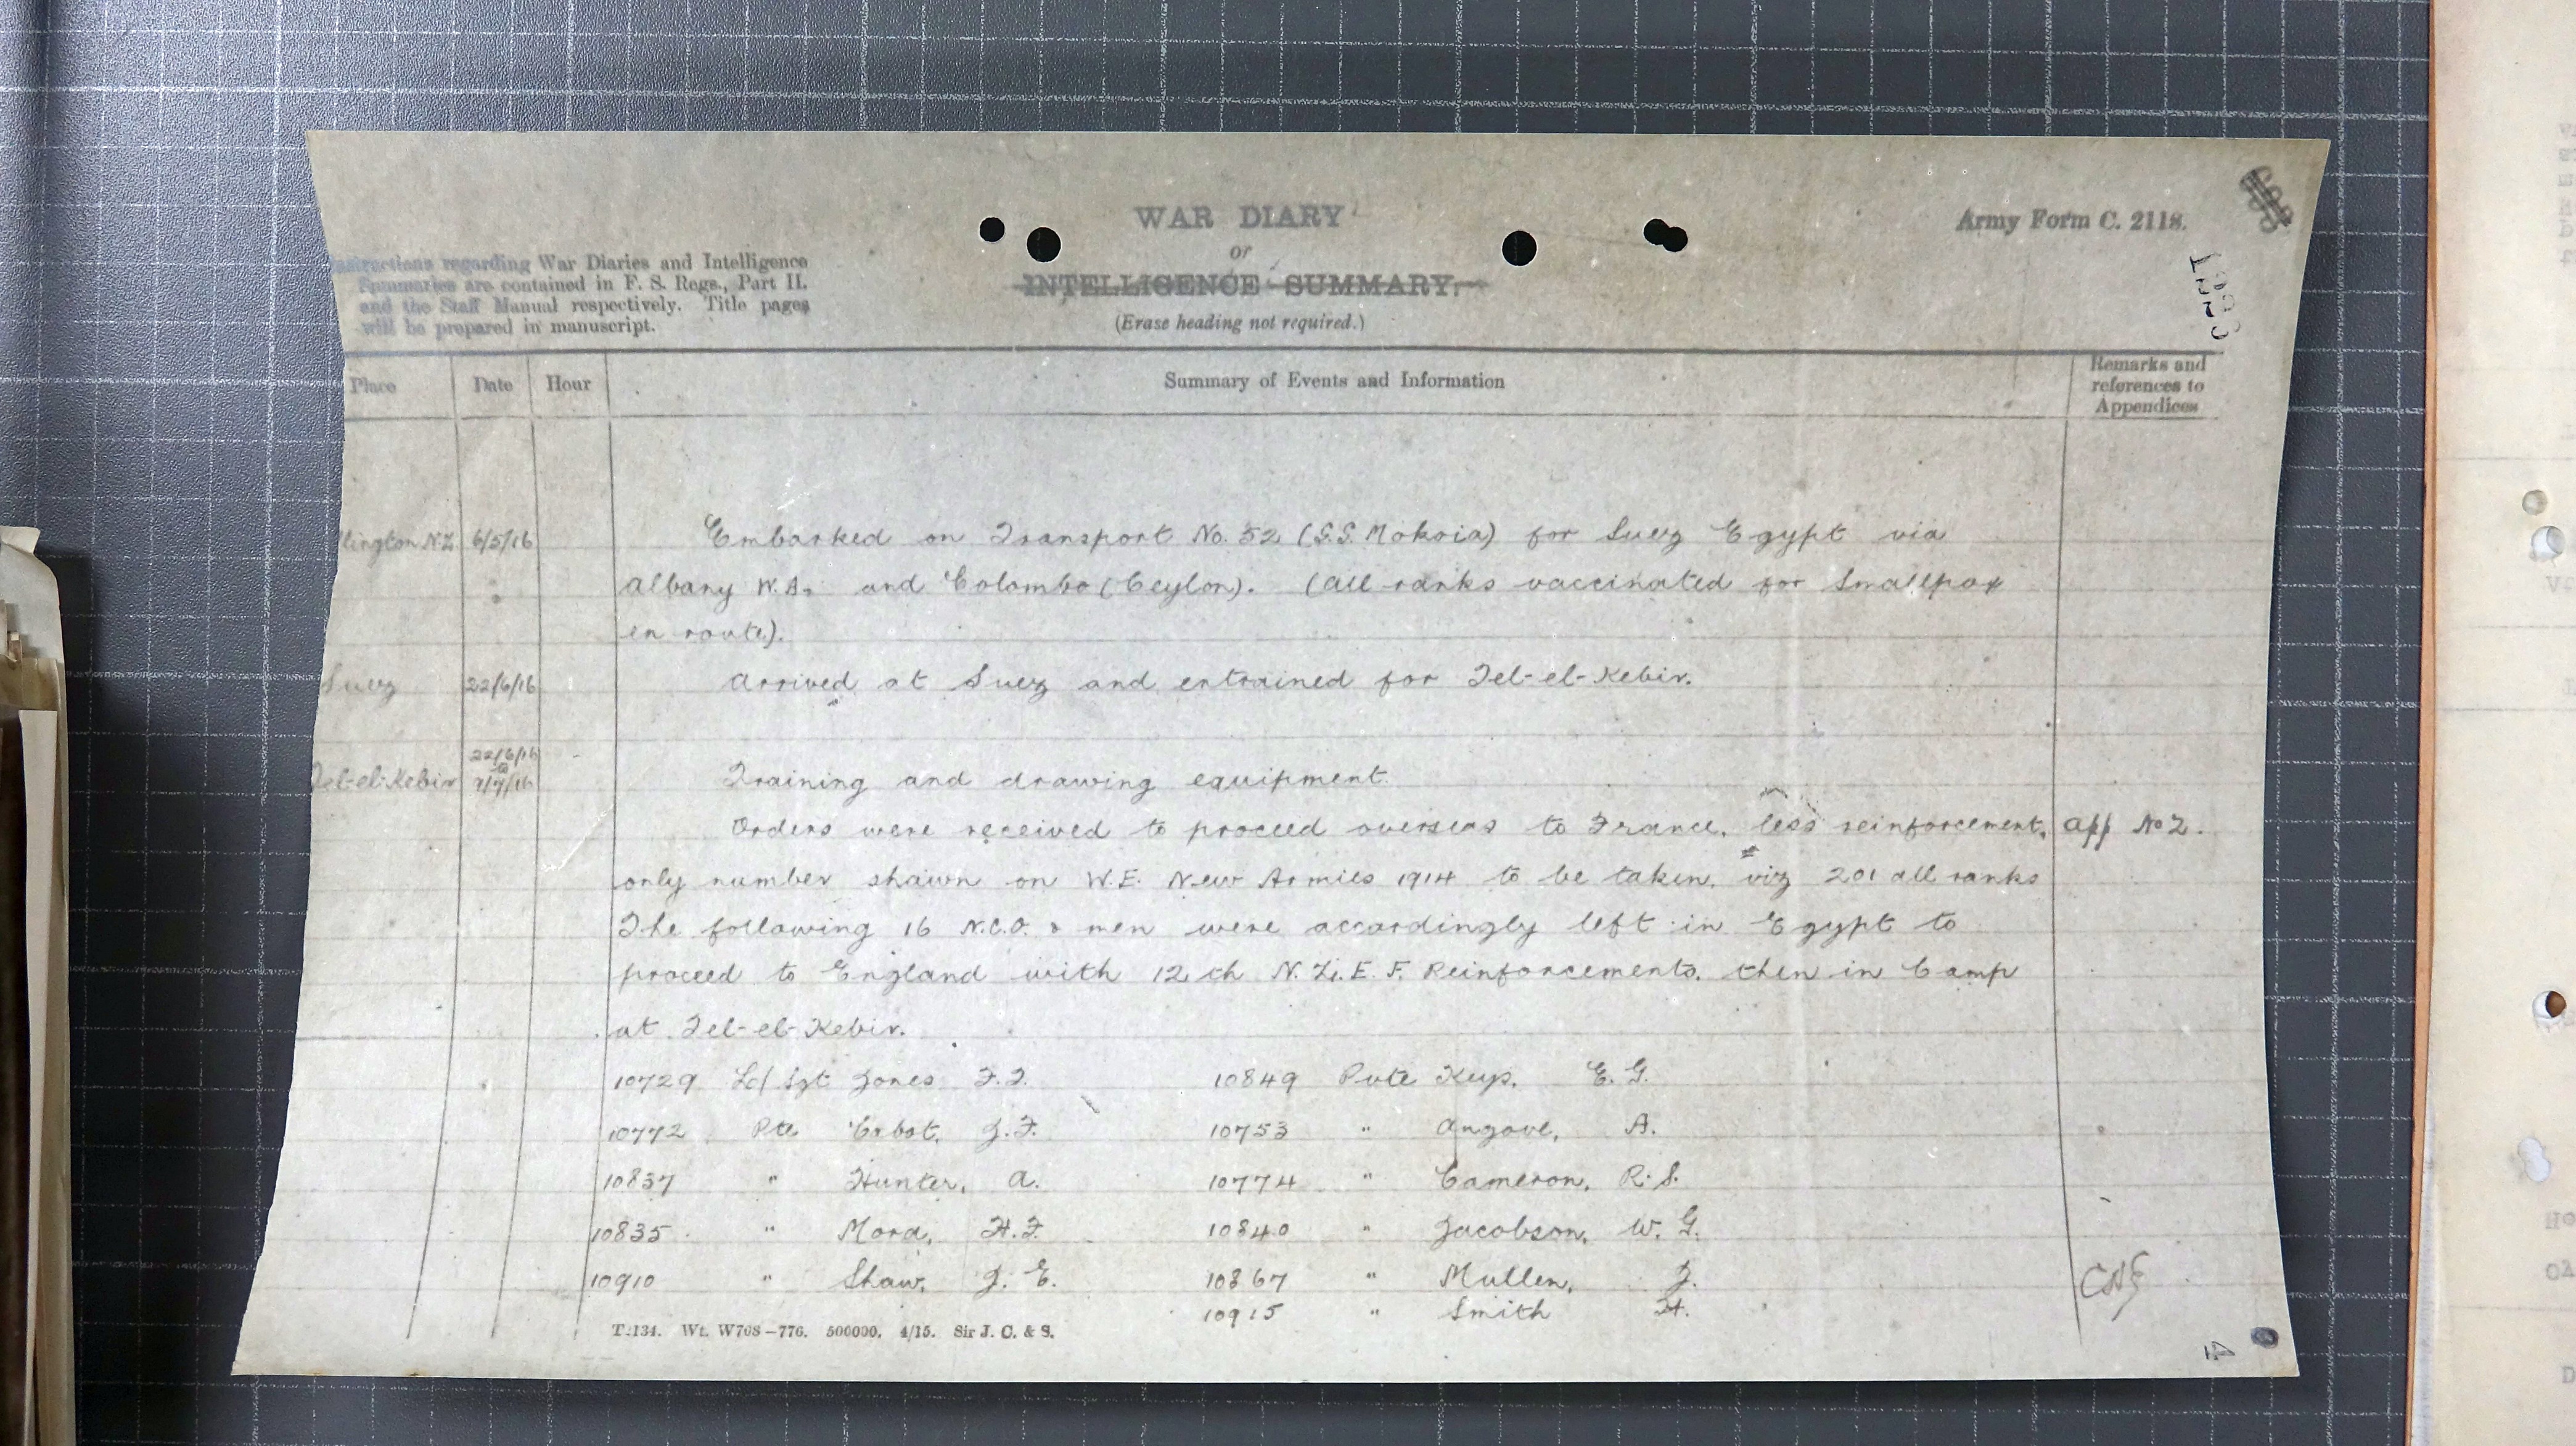 WAR DIARY
or
INTELLIGENCE SUMMARY.
(Erase heading not required.)
Army Form C. 2118.
Instructions regarding War Diaries and Intelligence
Summaries are contained in F. S. Regs., Part II.
and the Staff Manual respectively. Title pages
will be prepared in manuscript.
Place Date Hour Summary of Events and Information Remarks and references to Appendices
llington N.Z 6/5/16 Embarked on Transport No. 52 (S.S. Mokoia) for Suez Egypt via
Albany W.A. and Colombo (Ceylon). (All ranks vaccinated for Smallpox
en route).
Suez 22/6/16 Arrived at Suez and entrained for Tel-el-Kebir.
22/6/16
to
Tel-el-Kebir 7/7/16 Training and drawing equipment.
Orders were received to proceed overseas to France, less reinforcement, App No 2.
only number shown on W.E. New Armies 1914 to be taken, viz 201 all ranks
The following 16 N.C.O. & men were accordingly left in Egypt to
proceed to England with 12th N.Z.E.F. Reinforcements, then in Camp
at Tel-el-Kebir.
10729 Ld/Sgt Jones F.J. 10849 Pvte Keys, E. G.
10772 Pte J.F. 10753 " Angove, A.
10837 " Hunter, A. 10774 " Cameron, R.S.
10835 " H.F. 10840 " Jacobson, W. G.
10910 " Shaw, J. E. 10867 " Mullen, J.
10915 " Smith H.
T.134. Wt. W708—776. 500000. 4/15. Sir J. C. & S.
4